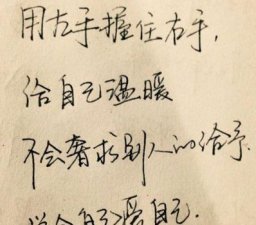 用左手握住右手,
给自己温暖
不会奢求别人的给予.
学会自己温暖自己.